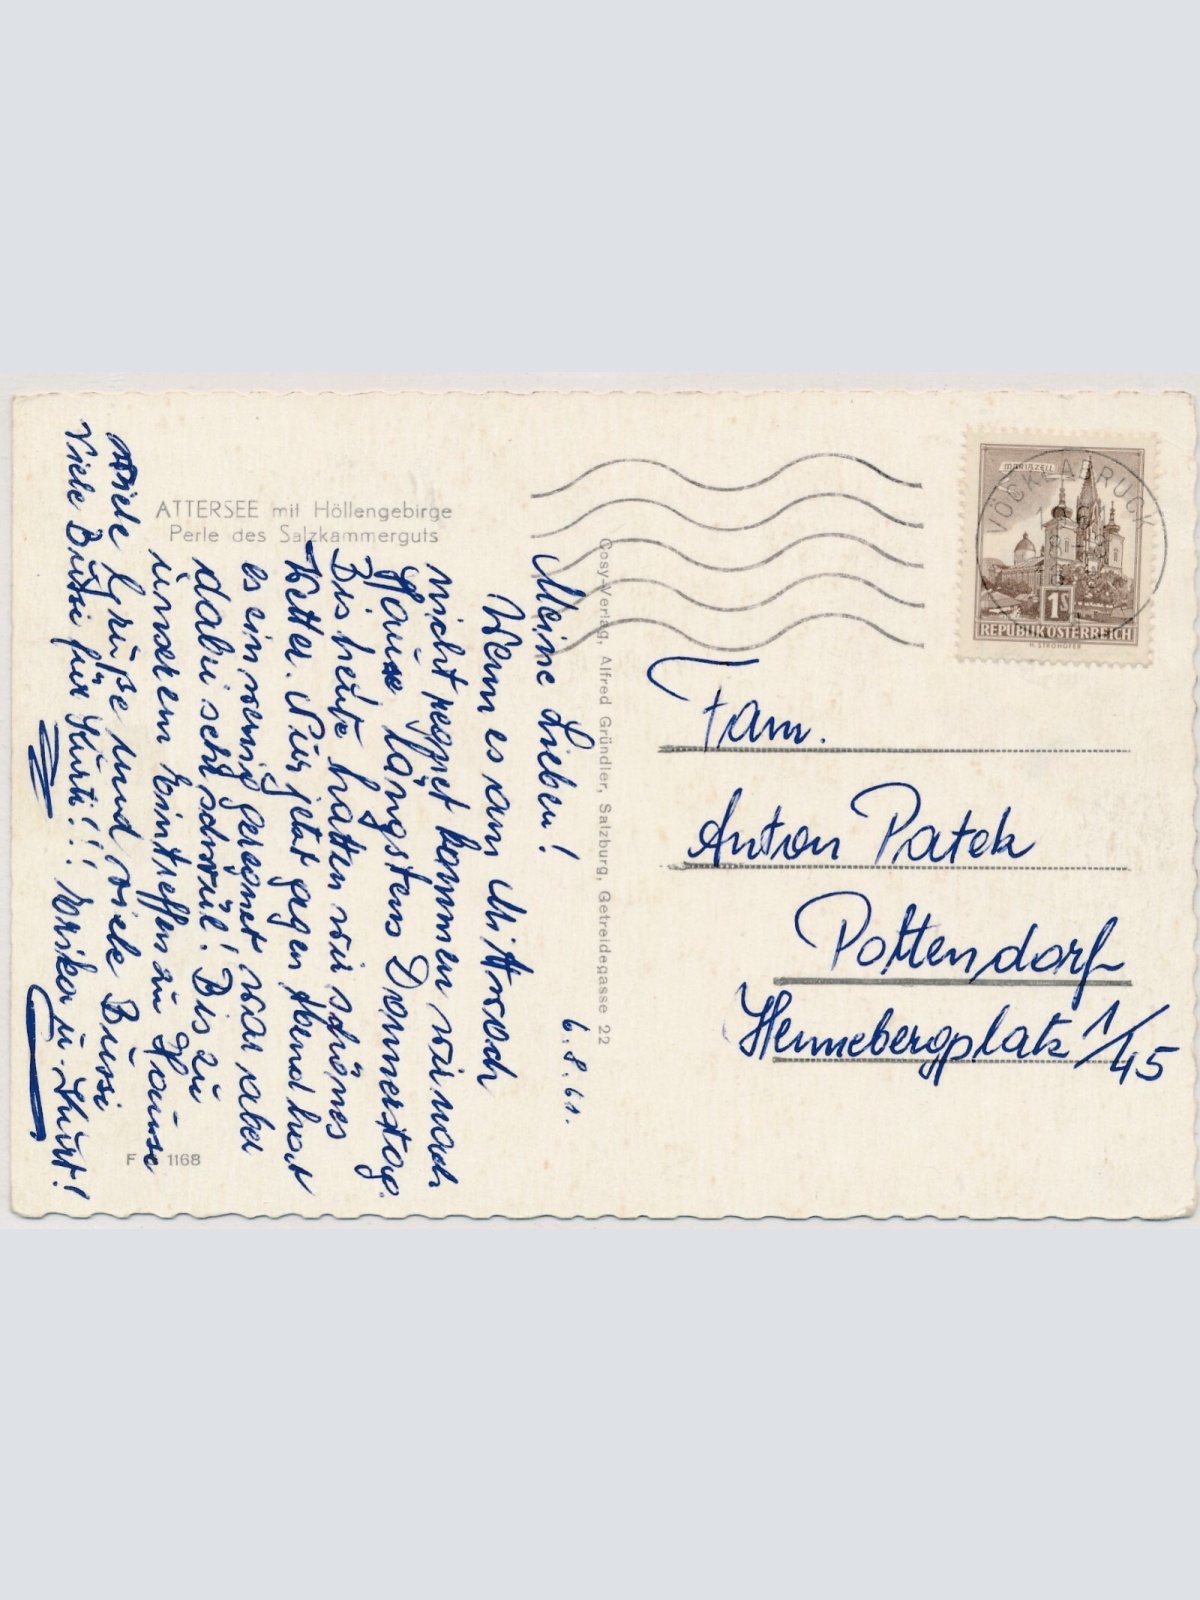 ATTERSEE mit Höllengebirge
Perle des Salzkammerguts
6.8.61.
Meine Lieben!
Wenn es am Mittwoch
nicht regnet kommen wir nach
Hause längstens Donnerstag.
Bis heute hatten wir schönes
Wetter. Nur jetzt gegen Abend hat
es ein wenig geregnet war aber
dabei sehr schwül! Bis zu
unserem Eintreffen zu Hause
viele Grüße und viele Bussi
Viele Bussi für Kurti!!! Erika u. Kurt!
F 1168
Cosy-Verlag, Alfred Gründler, Salzburg, Getreidegasse 22
MARIAZELL
VÖCKLABRUCK
1S
REPUBLIK ÖSTERREICH
H. STROHOFER
Fam.
Anton Patek
Pottendorf
Hennebergplatz 1/45